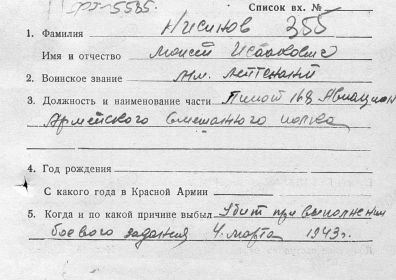 Список вх. №
355
1. Фамилия Нисинов
Имя и отчество Моисей Исаакович
2. Воинское звание мл. лейтенант
3. Должность и наименование части Пилот Авиацион
Армейского Смешанного полка
4. Год рождения
С какого года в Красной Армии
5. Когда и по какой причине выбыл Убит при выполнении
боевого задания 4 марта 1943 г.